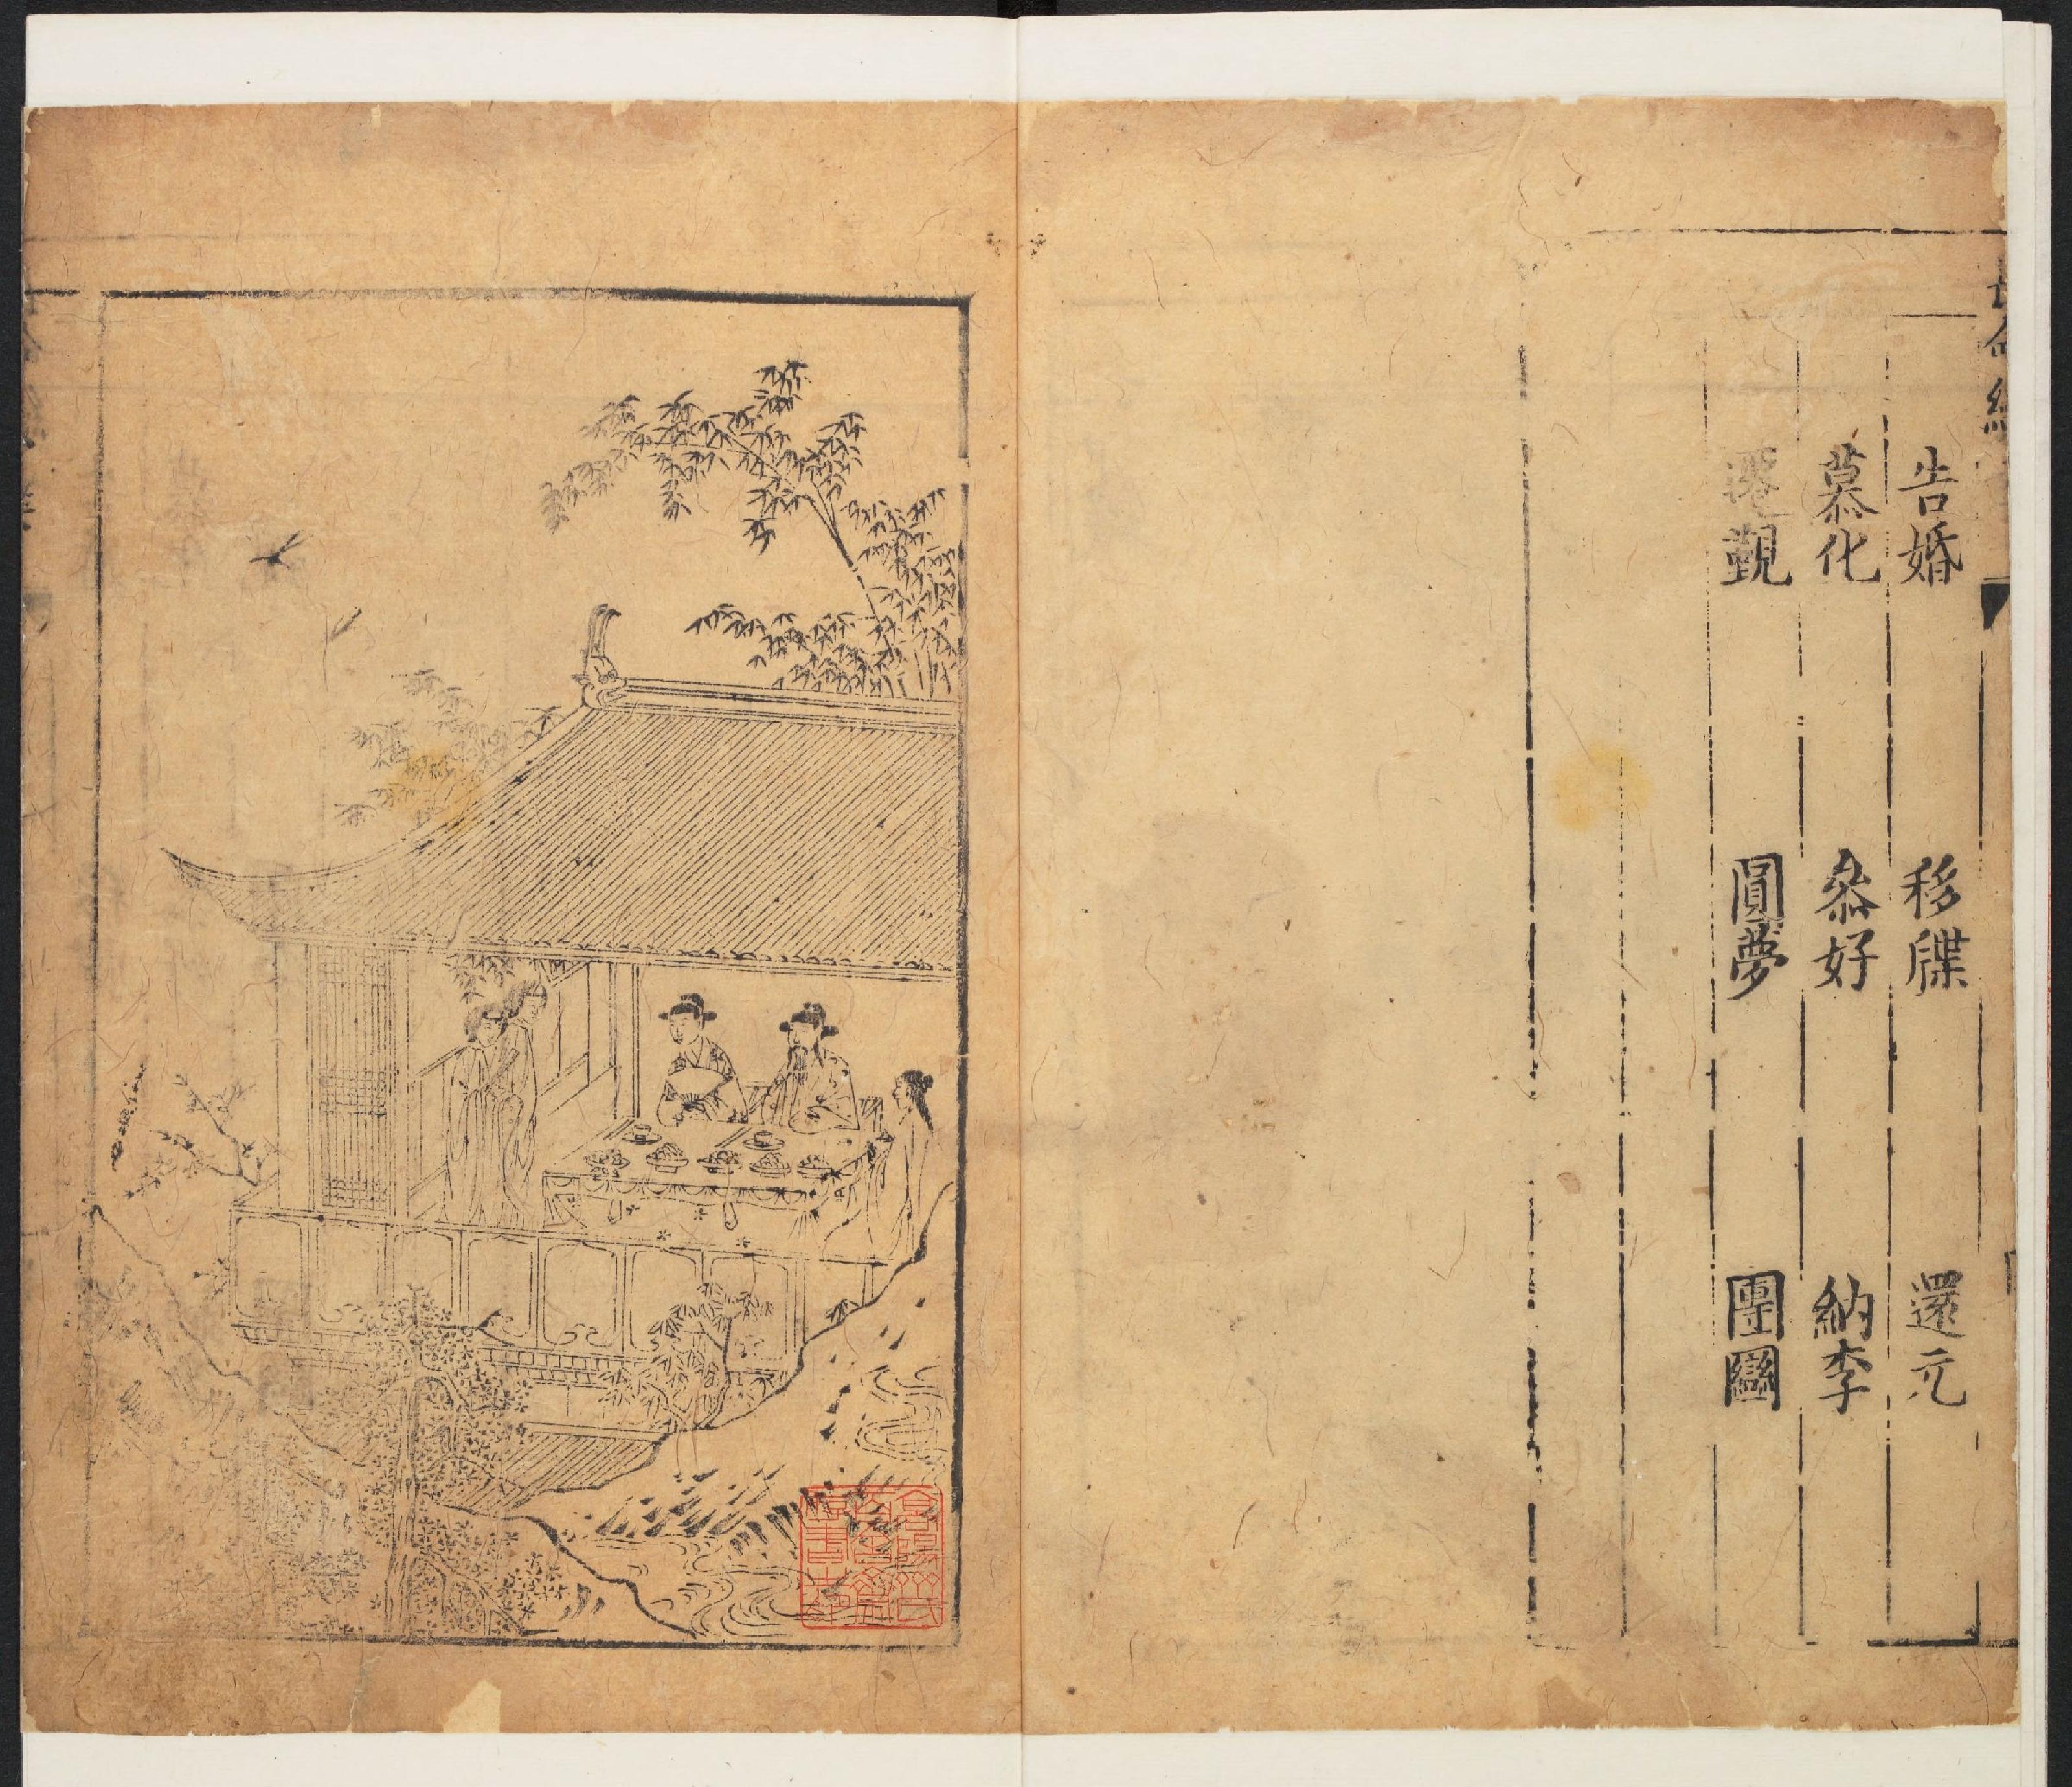 長命縷
告婚　移牒　還元
慕化　叅好　納李
遷覲　圓夢　團圞